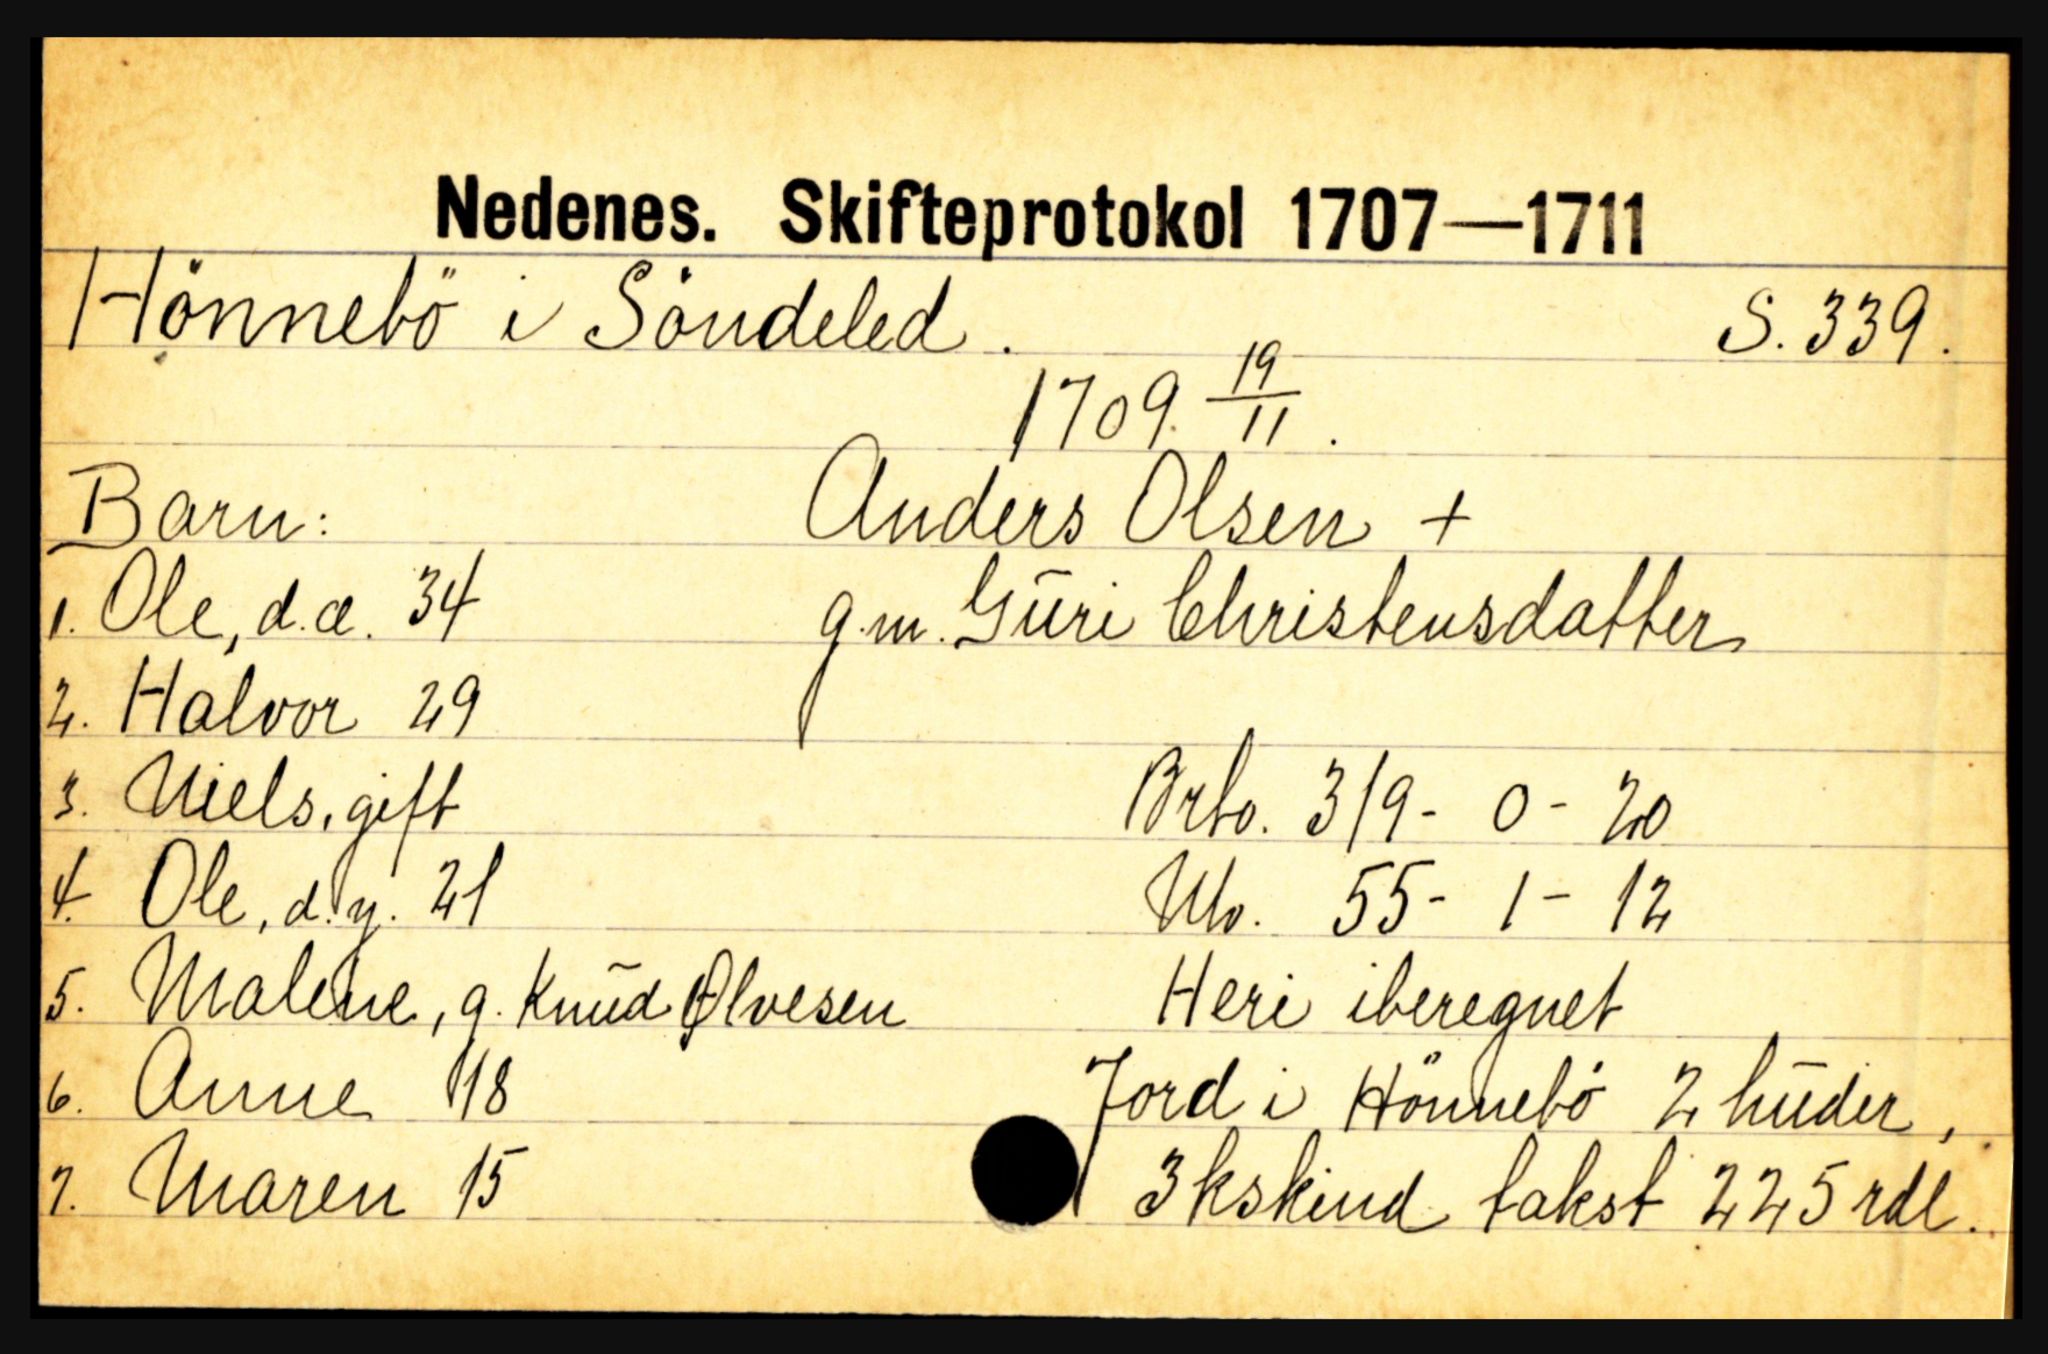 Nedenes. Skifteprotokol 1707—1711
Hönnebö i Söndeled. S. 339.
1709 19/11.
Anders Olsen +
g.m. Guri Christensdatter
Barn:
1. Ole, d.æ. 34
2. Halvor 29
3. Niels, gift
4. Ole, d.y. 21
5. Malene, g. Knud Ølvesen
6. Anne 18
7. Maren 15
Brto. 319- 0- 20
Nto. 55- 1- 12
Heri iberegnet
Jord i Hönnebö 2 huder,
3 kskind takst 225 rdl.